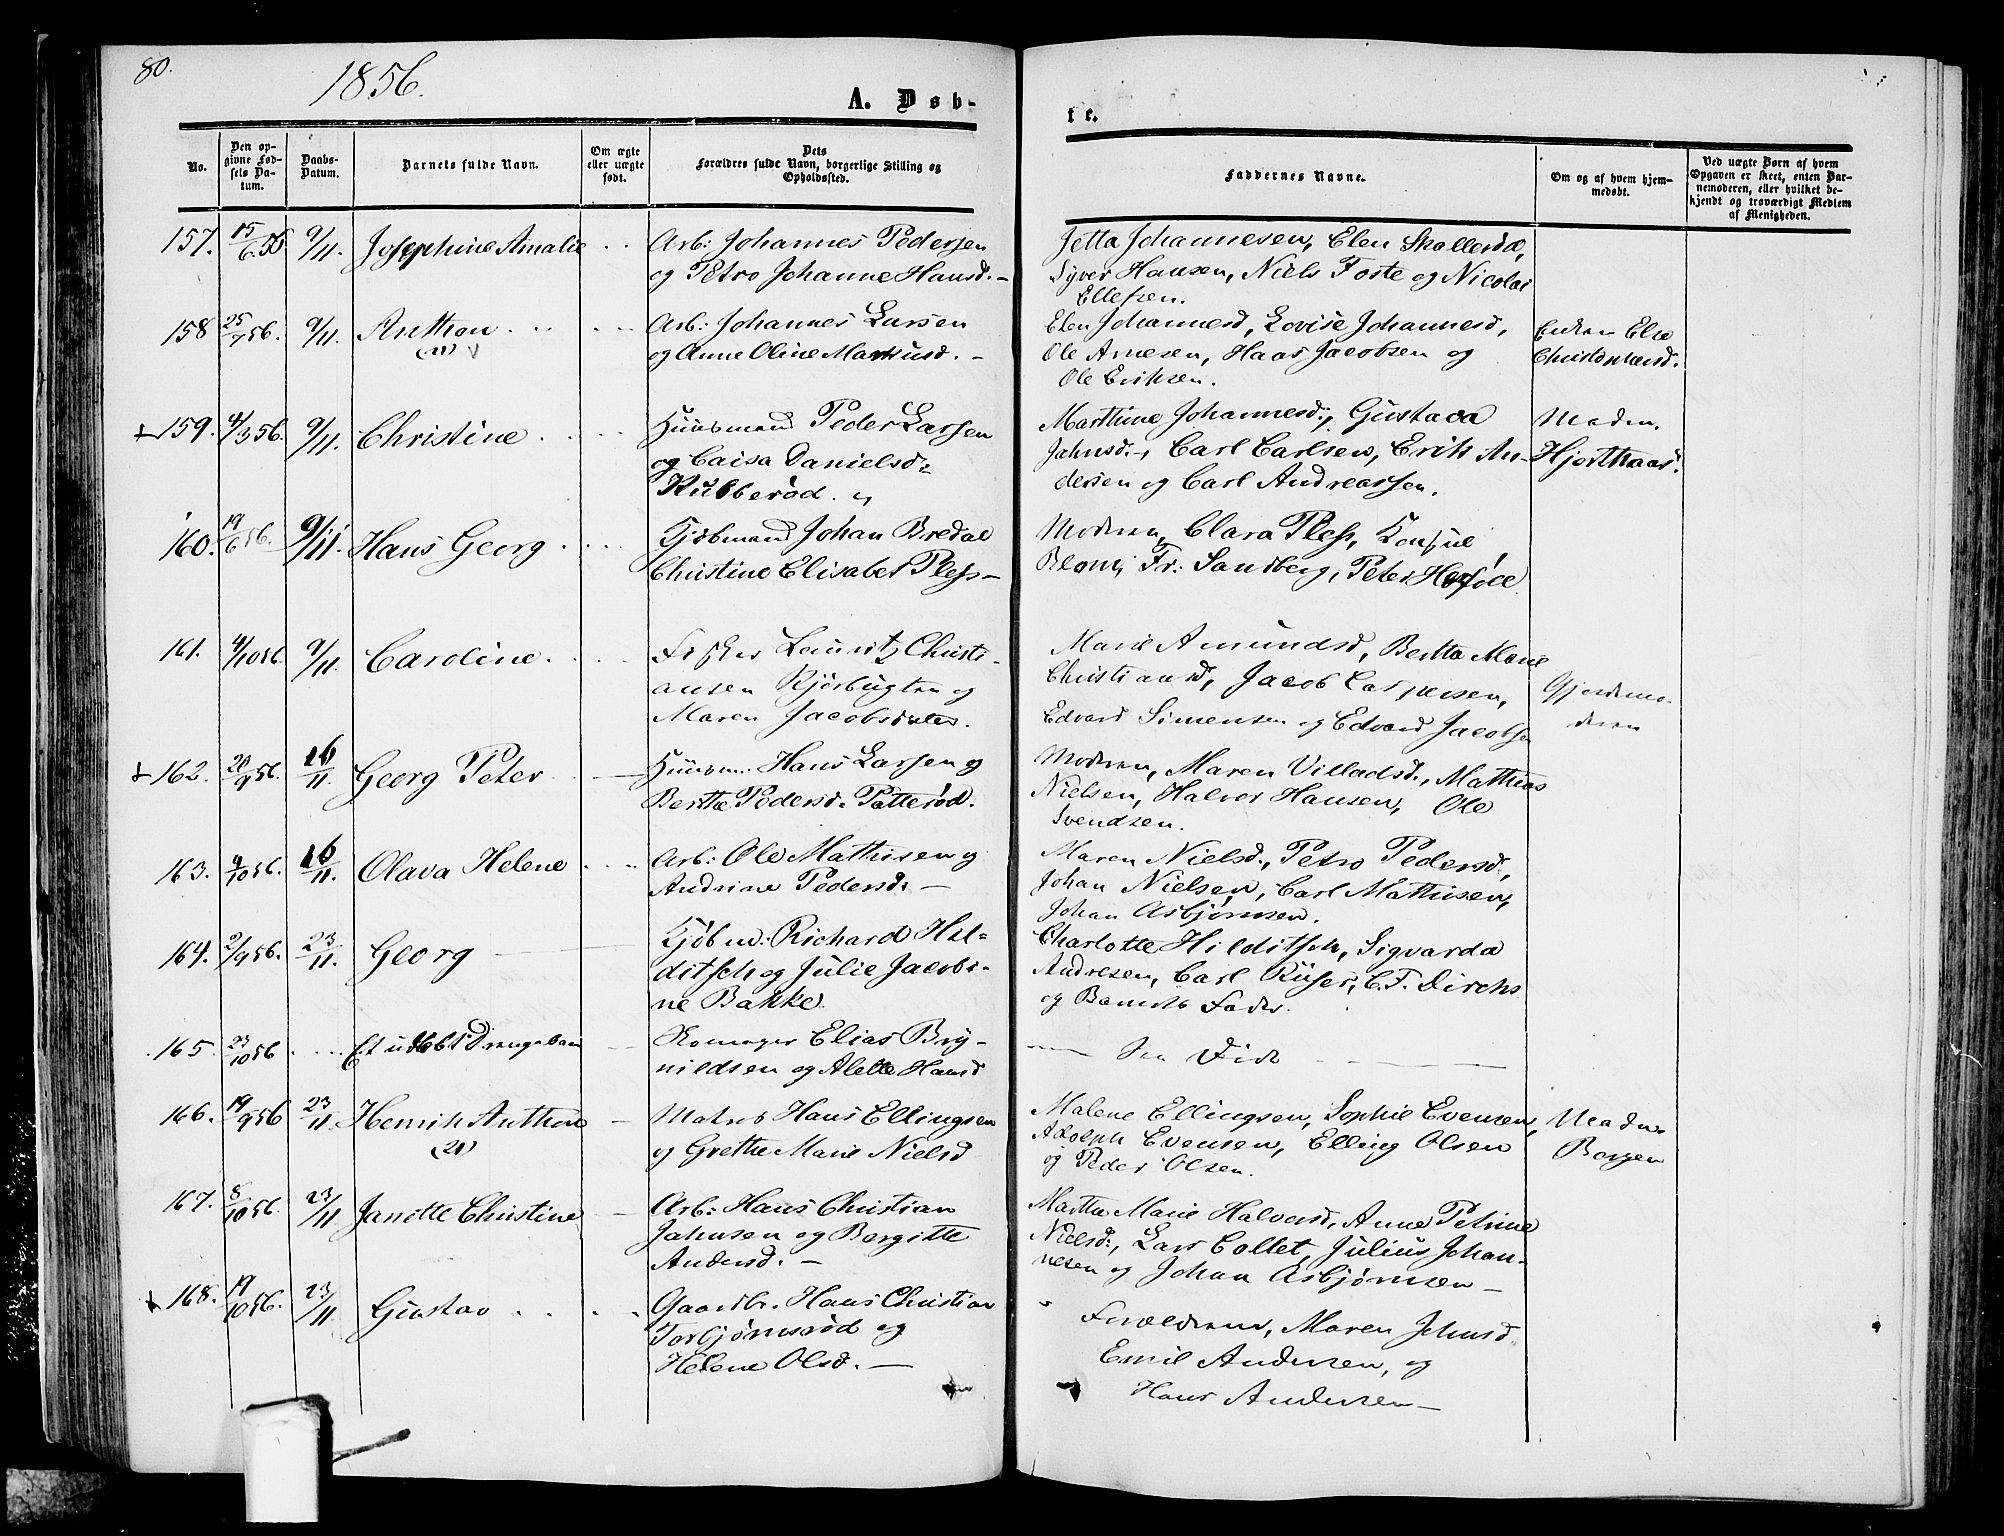 80.
1856.
A. Døb-
te.
No.
Den op-
givne Fød-
sels Da-
tum.
Daabs-
Datum.
Barnets fulde Navn.
Om ægte
eller uægte
født.
Dets
Forældres fulde Navn, borgerlige Stilling og
Opholdssted.
Faddernes Navne.
Om og af hvem hjem-
medøbt.
Ved uægte Børn af hvem
Opgaven er skeet, enten Bar-
nemoderen, eller hvilket be-
kjendt og troværdigt Medlem
af Menigheden.
157. 15/6 56 9/11 Josephine Amalie
Arb: Johannes Pedersen
og Petro Johanne Hansd. -
Jetta Johannesen, Elen
Syver Hansen, Niels Foste og Nicolai
Ellefsen.
158 25/7 56. 9/11. Anthon
Arb: Johannes Larsen
og Anne Oline Markusd. -
Elen Johannesd, Lovise Johannesd,
Ole Arnesen, Haas Jacobsen og
Ole Eriksen.
Enken Else
159. 4/3 56. 9/11. Christine
Huusmand Peder Larsen
og Caisa Danielsd.
Kubberød.
Marthine Johannesd., Gustava
Jahnsd., Carl Carlsen, Erik An-
dersen og Carl Andreassen.
Maden.
160. 19/6 56. 9/11. Hans Georg
Kjøbmand Johan Bredal
Christine Elisabet Pless -
Moderen, Clara Pless, Konsul
Blom, Fr: Sandberg, Peter
161. 4/10 56. 9/11. Caroline
Fisker Lauritz Christi-
ansen Rjørbugten og
Maren Jacobsdatter.
Marie Amundsd, Bertta Marie
Christiansd, Jacob Caspersen,
Edvard Simensen og Edvard Jacobsen
Gjordemo-
deren
162. 20/9 56. 16/11. Georg Peter
Huusm. Hans Larsen og
Berthe Pedersd. Patterød.
Moderen, Maren Villadsd., Mathias
Nielsen, Halvor Hansen, Ole
Svendsen.
163. 9/10 56. 16/11. Olava Helene
Arb: Ole Mathisen og
Andrine Pedersd. -
Maren Nielsd., Petro Pedersd.,
Johan Nielsen, Carl Mathisen,
Johan Asbjørnsen.
164. 2/9 56. 23/11. Georg
Kjøbm: Richard Hil-
ditsch og Julie Jacobi-
ne Bakke.
Charlotte Hilditsch, Sigvarda
Andresen, Carl Riiser, C. F. Dirchs
og Barnets Fader.
165. 23/10 56 Et udøbt Drengebarn
Skomager Elias Bry-
nildsen og Alette Hansd
166. 19/9 56 23/11. Henrik Anthon
Matros Hans Ellingsen
og Grethe Marie Nielsd
Malene Ellingsen, Sophie Evensen,
Adolph Evensen, Elling Olsen
og Peder Olsen.
Madm.
Bergen
167. 8/10 56. 23/11 Janette Christine
Arb: Hans Christian
Jahnsen og Bergitte
Andersd. -
Martha Marie Halvorsd, Anne Petrine
Nielsd:, Lars Collet, Julius Johan-
nesen og Johan Asbjørnsen -
168. 19/10 56. 23/11 Gustav
Gaardbr. Hans Christian
Torbjørnsrød og
Helene Olsd. -
Forældrene, Maren Johnsd.
Emil Andersen, og
Hans Andersen -